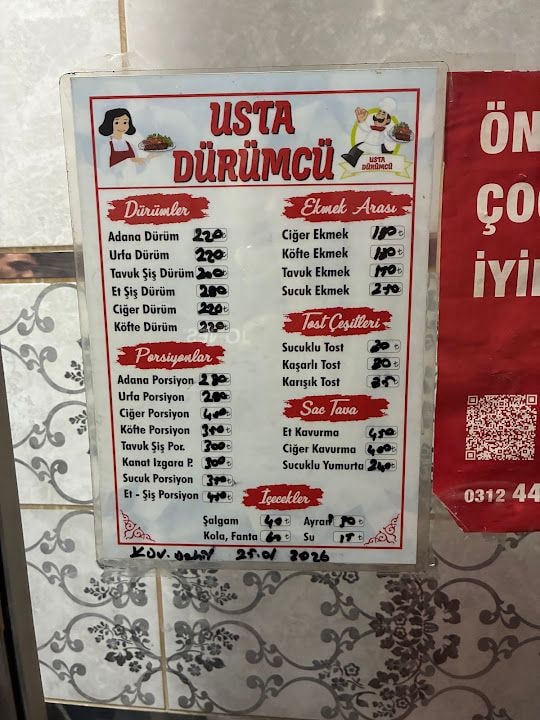 USTA
DÜRÜMCÜ
USTA
DÜRÜMCÜ
Dürümler
Adana Dürüm 220 ₺
Urfa Dürüm 220 ₺
Tavuk Şiş Dürüm 200 ₺
Et Şiş Dürüm 280 ₺
Ciğer Dürüm 220 ₺
Köfte Dürüm 220 ₺
Porsiyonlar
Adana Porsiyon
Urfa Porsiyon
Ciğer Porsiyon
Köfte Porsiyon
Tavuk Şiş Por. 300 ₺
Kanat Izgara P. 300 ₺
Sucuk Porsiyon
Et - Şiş Porsiyon
Ekmek Arası
Ciğer Ekmek 180 ₺
Köfte Ekmek 180 ₺
Tavuk Ekmek ₺
Sucuk Ekmek ₺
Tost Çeşitleri
Sucuklu Tost ₺
Kaşarlı Tost 80 ₺
Karışık Tost ₺
Sac Tava
Et Kavurma 450 ₺
Ciğer Kavurma 400 ₺
Sucuklu Yumurta 240 ₺
İçecekler
Şalgam 40 ₺ Ayran ₺
Kola, Fanta 60 ₺ Su 15 ₺
KDV. Dahil 25.01 2026
ÖN
ÇO
İYİ
0312 44